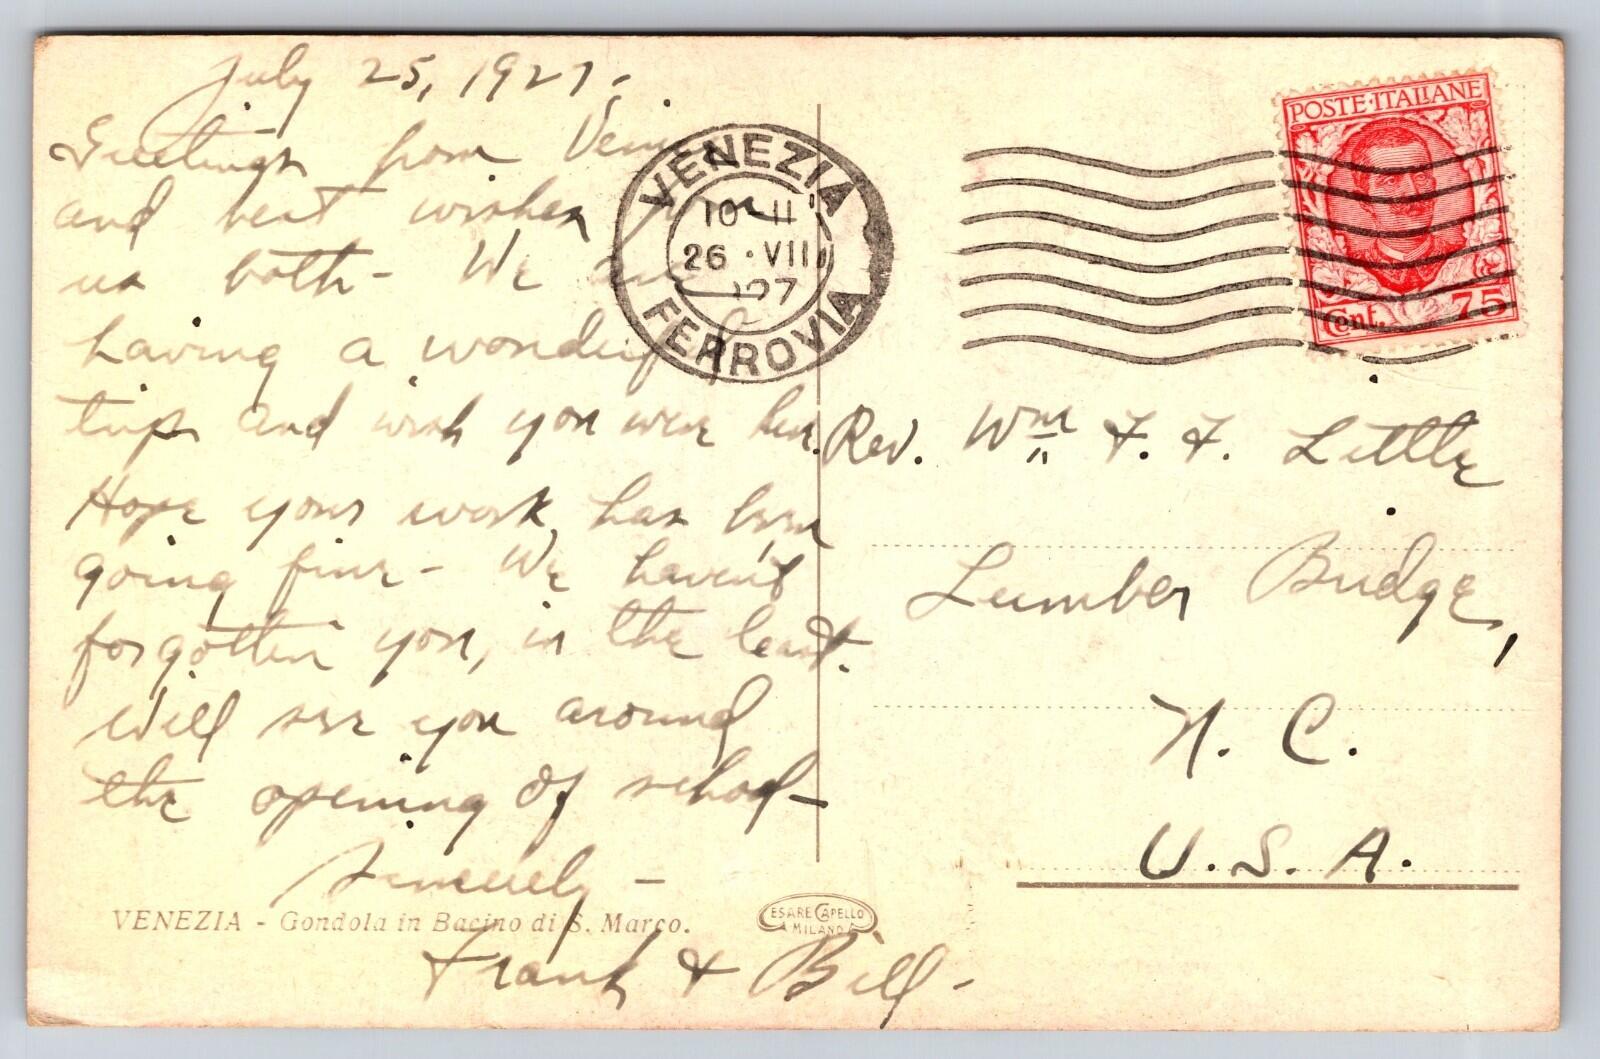 July 25, 1927.
Greetings from Venice
and best wishes from
us both - We are
having a wonderful
trip and wish you were here.
Hope your work has been
going fine - We haven't
forgotten you, in the least.
Will see you around
the opening of school -
Sincerely -
Frank & Bill -
VENEZIA - Gondola in Bacino di S. Marco.
CESARE CAPELLO
MILANO
VENEZIA
10-11
26 · VII
927
FERROVIA
POSTE·ITALIANE
Cent. 75
Rev. Wm F. F. Little
Lumber Bridge,
N. C.
U. S. A.